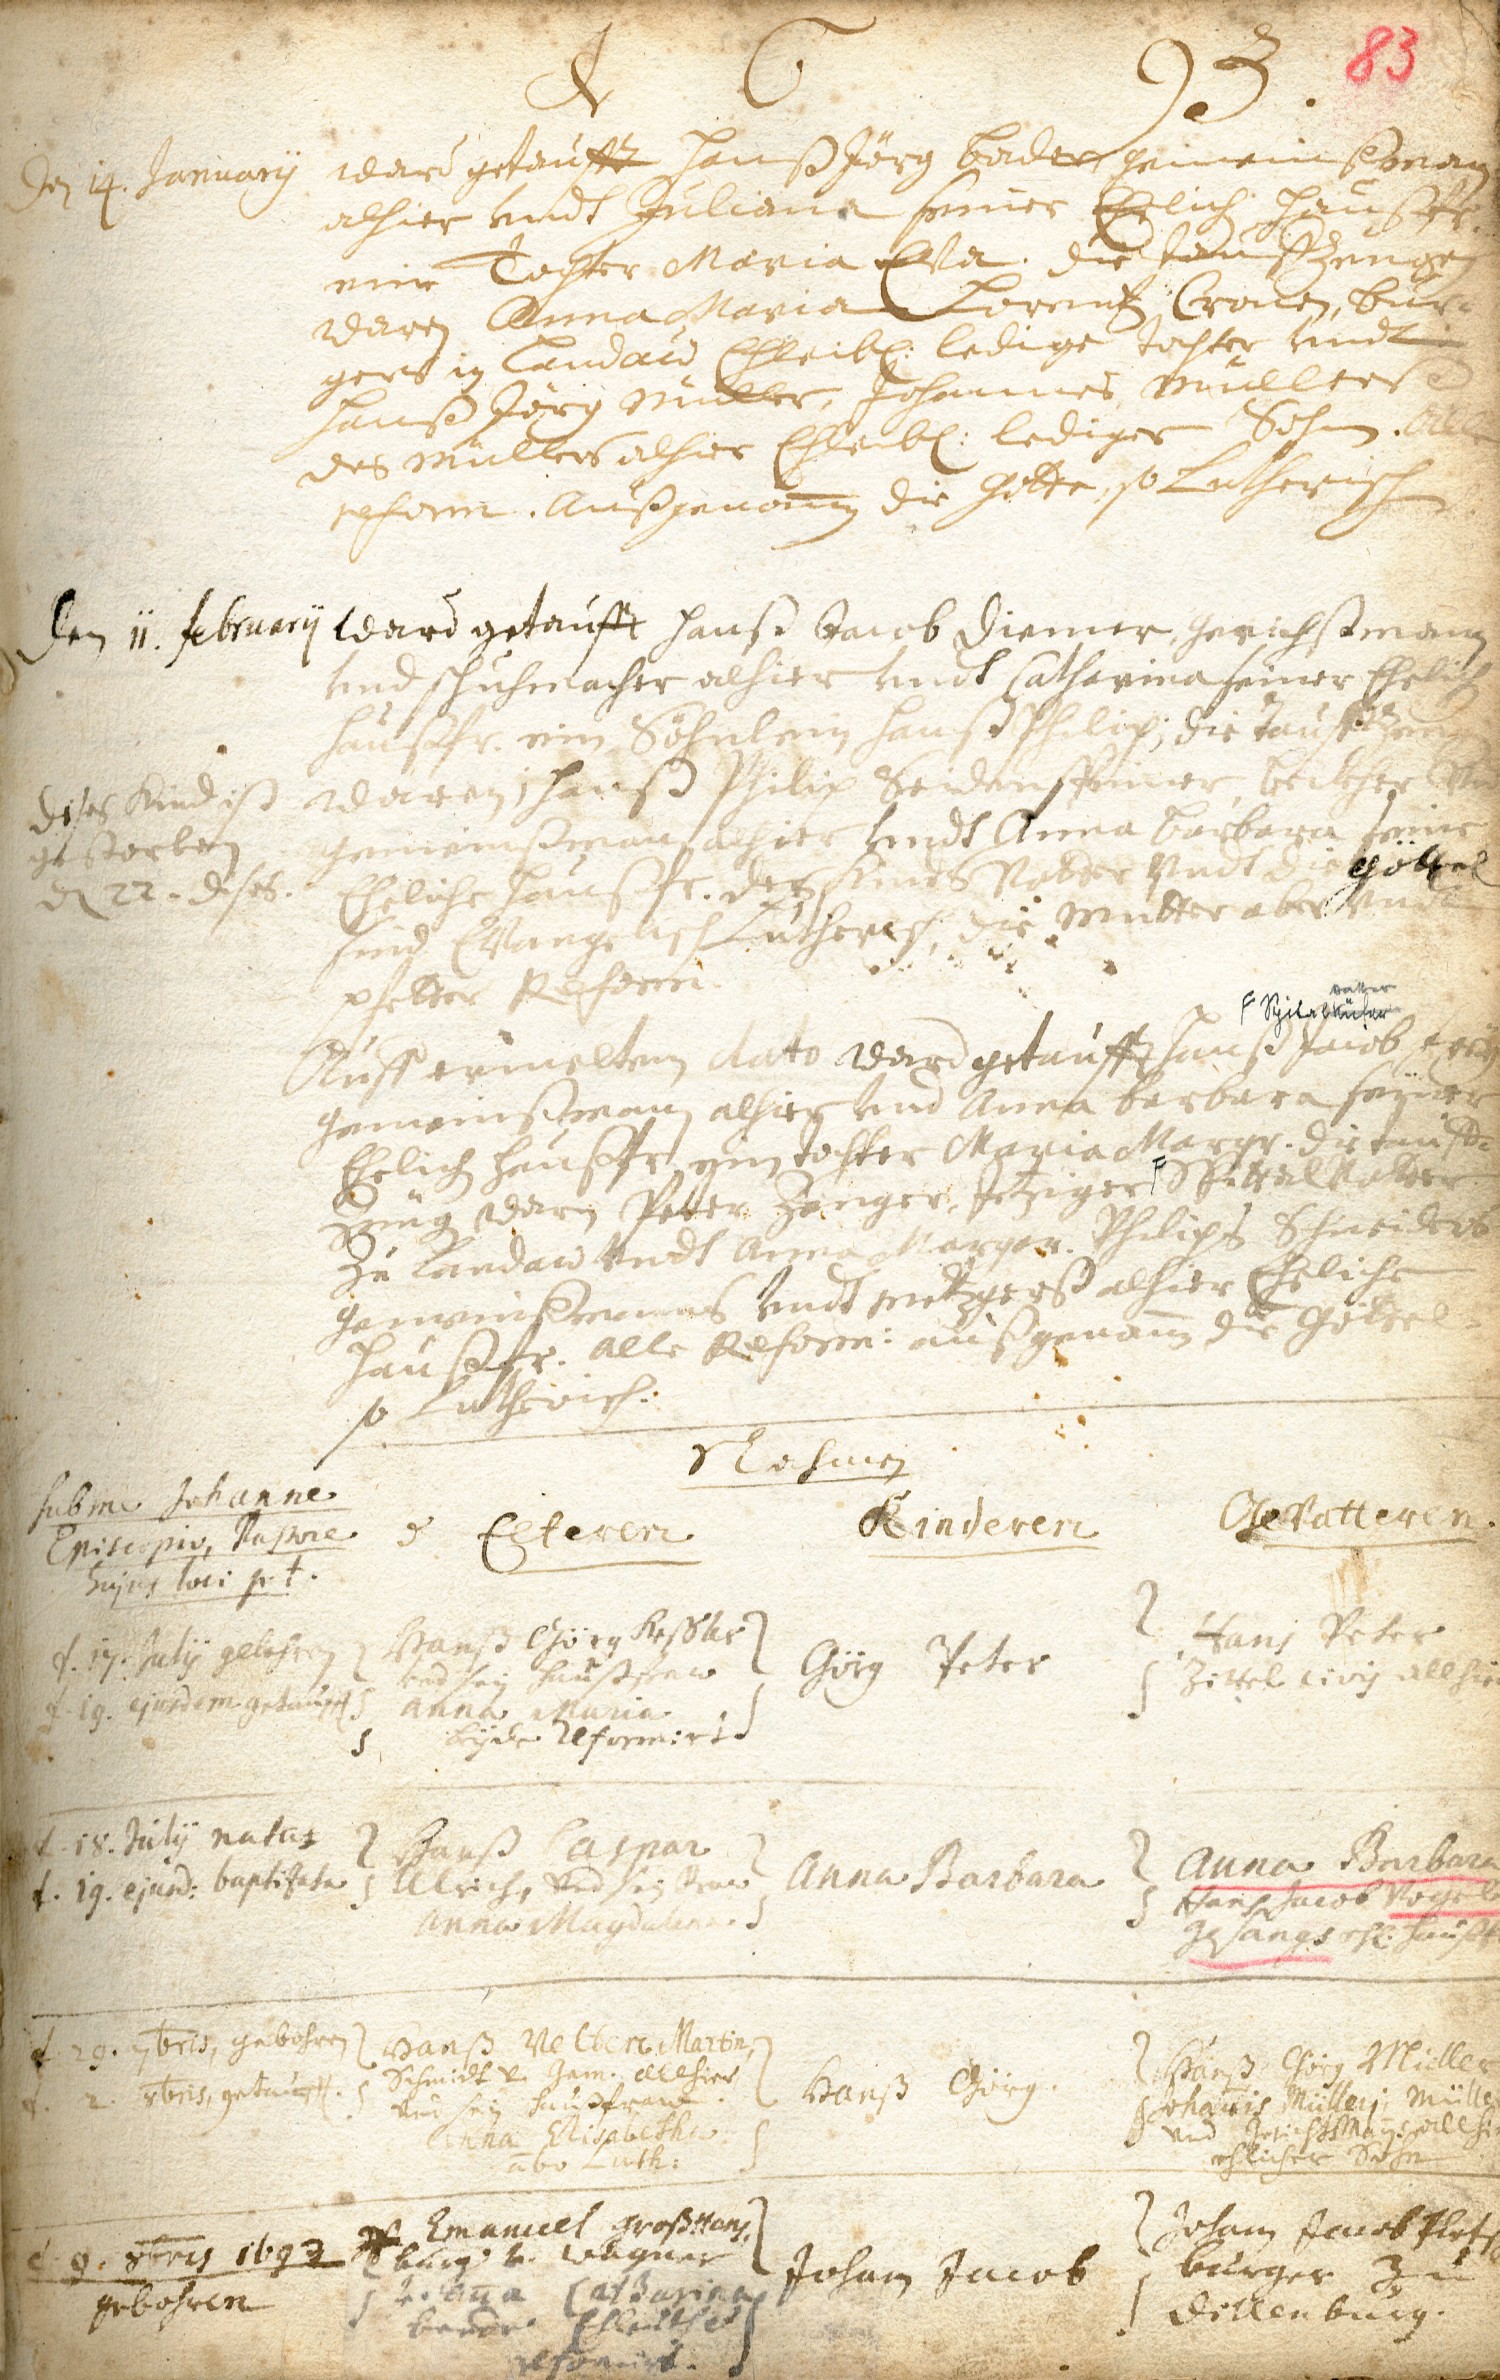 83
Den 14. Januarÿ ward getaufft Hanß Jörg Bader gemeinßman
alhier undt Juliana seiner Ehelich Haußfr.
eine Tochter Maria Eva. die Tauffzeugen
waren Anna Maria Lorentz Cronen, bur
gers in Landaw Eheleibl: ledige tochter undt
Hanß Jörg Müller, Johannes Müllers
des Müllers alhier Eheleibl: lediger Sohn. Alle
reform. Außgenom̄en die Götte, so Lutherisch
Den 11. februarÿ ward getaufft Hanß Jacob Diemer, gerichtßmann
und schuhmacher alhier undt Catharina seiner Ehelich
Haußfr. ein Söhnlein Hanß Philip; die Tauffzeugen
dises Kind ist waren, Hanß Philip Seidensteiner, becker
gestorben gemeinßman alhier undt Anna Barbara seine
d 22. dises. Eheliche Haußfr. des Kinds Vatter undt die göttel
sind Evangelisch Lutherisch, die Mutter aber undt
pfetter Reform.
F Spitalvatter
Auff ermeltem dato ward getaufft Hanß Jacob
gemeinßman alhier und Anna Barbara seiner
Ehelich Haußfr. ein tochter Maria Margr. die tauff
zeug waren Peter Zenger, Jetziger F Spittal Vatter
zu Landaw undt Anna Margar. Philips Schneiders
gemeinßmans undt metzgerß alhier Eheliche
Haußfr. alle Reform: außgenom̄ die Göttel
so Lutherisch.
Nahmen
sub me Johanne
Episcopio, Pastore
hujus loci p. t.
d Elteren Kinderen Gevatteren.
d. 17. Julÿ gebohren
d. 19. ejusdem getaufft
Hanß Görg Keßler
und sein Haußfraw
Anna Maria
beÿde Reformirt
Görg Peter
Hans Peter
Zittel civis allhier
d. 18. Julÿ natus
d. 19. ejusd: baptisata
Hanß Caspar
Ulrich, und sein fraw
Anna Magdalena.
Anna Barbara
Anna Barbara
Hans Jacob Vogel
gesangs ehl. Haußfr
d. 29. 7bris, gebohren
d. 2. 8bris, getaufft.
Hanß Velten Martin,
Schmidt u. Gem. allhier
und sein Haußfraw
Anna Elisabetha
ambo Luth:
Hanß Görg.
Hanß Görg Müller
Johannis Mülleri, Müller
und Gerichtsman allhier
ehlicher Sohn
d. 9. 8bris 1693
gebohren
Emanuel Großhans,
burg. u. wagner
u. Ana Catharina
beede Eheleuthe
reformirt.
Johan Jacob
Johan Jacob
burger zu
Dillenburg.